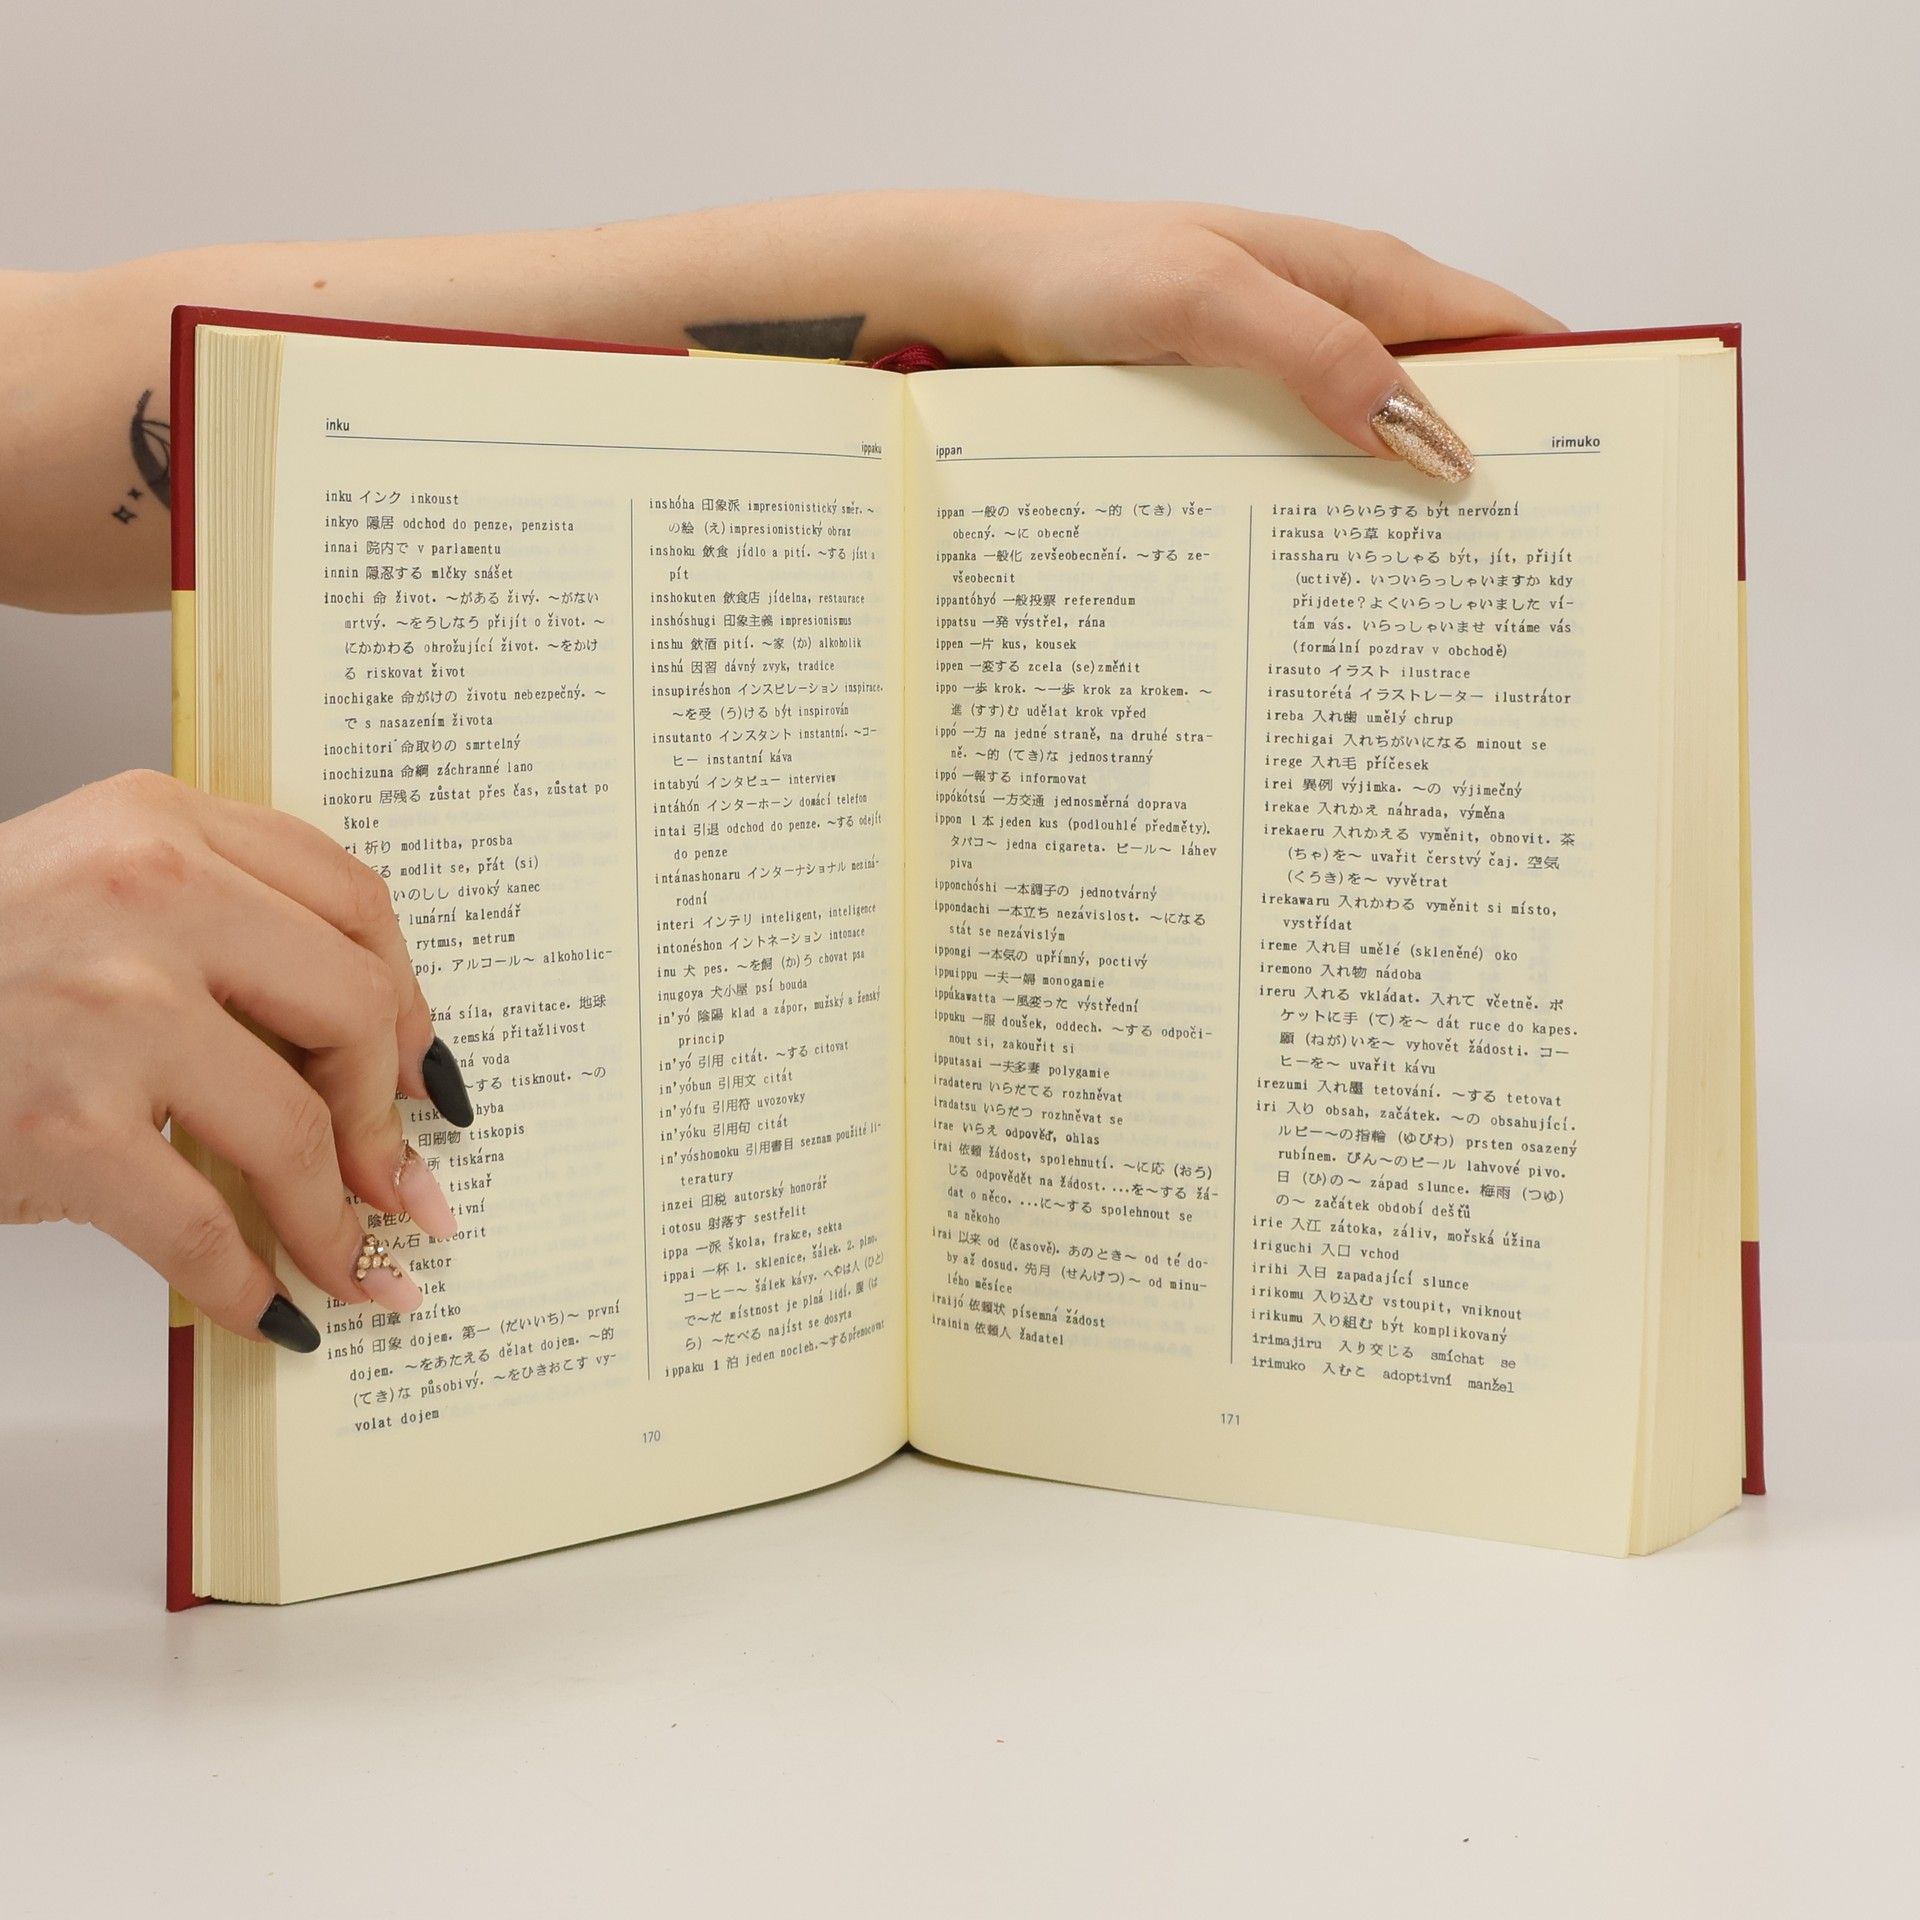 inku
ippaku
inku インク inkoust
inkyo 隠居 odchod do penze, penzista
innai 院内で v parlamentu
innin 隠忍する mlčky snášet
inochi 命 život. ～がある živý. ～がない
mrtvý. ～をうしなう přijít o život. ～
にかかわる ohrožující život. ～をかけ
る riskovat život
inochigake 命がけの životu nebezpečný. ～
で s nasazením života
inochitori 命取りの smrtelný
inochizuna 命綱 záchranné lano
inokoru 居残る zůstat přes čas, zůstat po
škole
ri 祈り modlitba, prosba
る modlit se, přát (si)
いのしし divoký kanec
lunární kalendář
rytmus, metrum
poj. アルコール～ alkoholic-
žná síla, gravitace. 地球
zemská přitažlivost
ná voda
～する tisknout. ～の
tisk hyba
印刷物 tiskopis
所 tiskárna
tiskař
陰性の tivní
いん石 meteorit
faktor
olek
inshó 印章 razítko
inshó 印象 dojem. 第一 (だいいち)～ první
dojem. ～をあたえる dělat dojem. ～的
(てき)な působivý. ～をひきおこす vy-
volat dojem
inshóha 印象派 impresionistický směr. ～
の絵 (え) impresionistický obraz
inshoku 飲食 jídlo a pití. ～する jíst a
pít
inshokuten 飲食店 jídelna, restaurace
inshóshugi 印象主義 impresionismus
inshu 飲酒 pití. ～家 (か) alkoholik
inshú 因習 dávný zvyk, tradice
insupiréshon インスピレーション inspirace.
～を受 (う)ける být inspirován
insutanto インスタント instantní. ～コー
ヒー instantní káva
intabyú インタビュー interview
intáhón インターホーン domácí telefon
intai 引退 odchod do penze. ～する odejít
do penze
intánashonaru インターナショナル meziná-
rodní
interi インテリ inteligent, inteligence
intonéshon イントネーション intonace
inu 犬 pes. ～を飼 (か)う chovat psa
inugoya 犬小屋 psí bouda
in'yó 陰陽 klad a zápor, mužský a ženský
princip
in'yó 引用 citát. ～する citovat
in'yóbun 引用文 citát
in'yófu 引用符 uvozovky
in'yóku 引用句 citát
in'yóshomoku 引用書目 seznam použité li-
teratury
inzei 印税 autorský honorář
iotosu 射落す sestřelit
ippa 一派 škola, frakce, sekta
ippai 一杯 1. sklenice, šálek. 2. plno.
コーヒー～ šálek kávy. へやは人 (ひと)
で～だ místnost je plná lidí. 腹 (は
ら) ～たべる najíst se dosyta
ippaku 1 泊 jeden nocleh.～するpřenocovat
170
ippan
irimuko
ippan 一般の všeobecný. ～的 (てき) vše-
obecný. ～に obecně
ippanka 一般化 zevšeobecnění. ～する ze-
všeobecnit
ippantóhyó 一般投票 referendum
ippatsu 一発 výstřel, rána
ippen 一片 kus, kousek
ippen 一変する zcela (se)změnit
ippo 一歩 krok. ～一歩 krok za krokem. ～
進 (すす)む udělat krok vpřed
ippó 一方 na jedné straně, na druhé stra-
ně. ～的 (てき)な jednostranný
ippó 一報する informovat
ippókótsú 一方交通 jednosměrná doprava
ippon 1 本 jeden kus (podlouhlé předměty).
タバコ～ jedna cigareta. ビール～ láhev
piva
ipponchóshi 一本調子の jednotvárný
ippondachi 一本立ち nezávislost. ～になる
stát se nezávislým
ippongi 一本気の upřímný, poctivý
ippuippu 一夫一婦 monogamie
ippúkawatta 一風変った výstřední
ippuku 一服 doušek, oddech. ～する odpoči-
nout si, zakouřit si
ipputasai 一夫多妻 polygamie
iradateru いらだてる rozhněvat
iradatsu いらだつ rozhněvat se
irae いらえ odpověď, ohlas
irai 依頼 žádost, spolehnutí. ～に応 (おう)
じる odpovědět na žádost. ...を～する žá-
dat o něco. ...に～する spolehnout se
na někoho
irai 以来 od (časově). あのとき～ od té do-
by až dosud. 先月 (せんげつ)～ od minu-
lého měsíce
iraijó 依頼状 písemná žádost
irainin 依頼人 žadatel
iraira いらいらする být nervózní
irakusa いら草 kopřiva
irassharu いらっしゃる být, jít, přijít
(uctivě). いついらっしゃいますか kdy
přijdete? よくいらっしゃいました ví-
tám vás. いらっしゃいませ vítáme vás
(formální pozdrav v obchodě)
irasuto イラスト ilustrace
irasutorétá イラストレーター ilustrátor
ireba 入れ歯 umělý chrup
irechigai 入れちがいになる minout se
irege 入れ毛 příčesek
irei 異例 výjimka. ～の výjimečný
irekae 入れかえ náhrada, výměna
irekaeru 入れかえる vyměnit, obnovit. 茶
(ちゃ)を～ uvařit čerstvý čaj. 空気
(くうき)を～ vyvětrat
irekawaru 入れかわる vyměnit si místo,
vystřídat
ireme 入れ目 umělé (skleněné) oko
iremono 入れ物 nádoba
ireru 入れる vkládat. 入れて včetně. ポ
ケットに手 (て)を～ dát ruce do kapes.
願 (ねが)いを～ vyhovět žádosti. コー
ヒーを～ uvařit kávu
irezumi 入れ墨 tetování. ～する tetovat
iri 入り obsah, začátek. ～の obsahující.
ルビー～の指輪 (ゆびわ) prsten osazený
rubínem. びん～のビール lahvové pivo.
日 (ひ)の～ západ slunce. 梅雨 (つゆ)
の～ začátek období dešťů
irie 入江 zátoka, záliv, mořská úžina
iriguchi 入口 vchod
irihi 入日 zapadající slunce
irikomu 入り込む vstoupit, vniknout
irikumu 入り組む být komplikovaný
irimajiru 入り交じる smíchat se
irimuko 入むこ adoptivní manžel
171